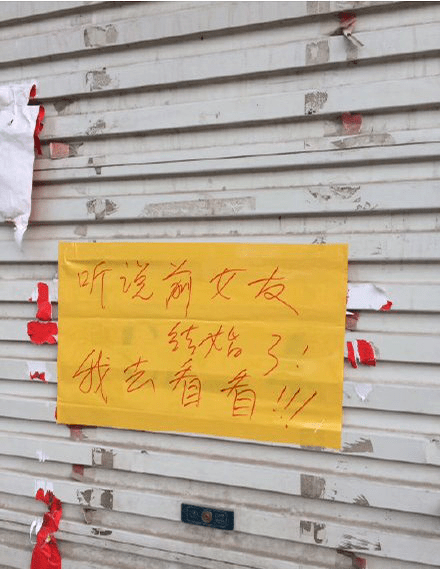 听说前女友
结婚了!
我去看看!!!